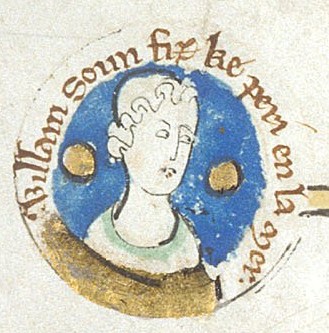 Willam soun fiz ke peri en la mer.